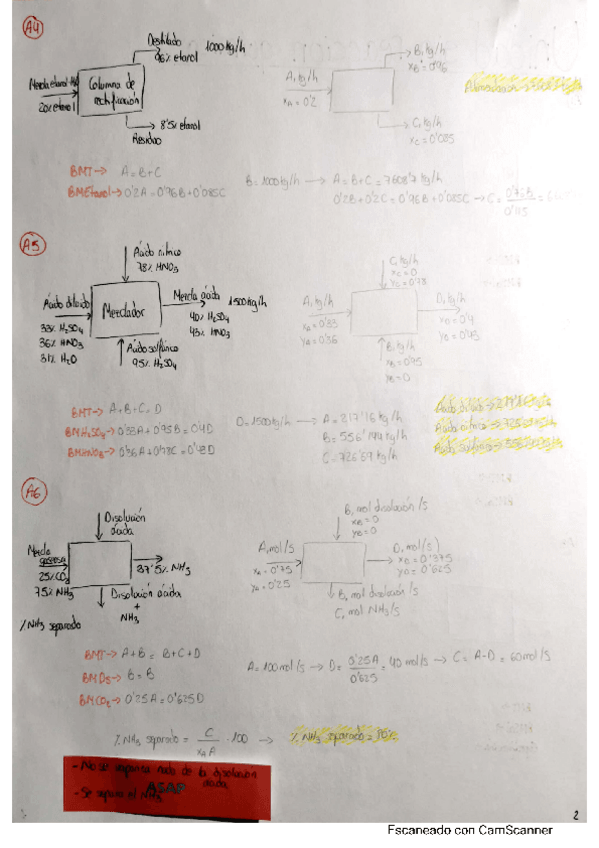 A4
Destilado 1000 kg/h
96% etanol
Mezcla etanol
20% etanol
Columna de
rectificación
8'5% etanol
Residuo
A, kg/h
xA = 0'2
B, kg/h
xB = 0'96
C, kg/h
xC = 0'085
BMT → A = B+C
BMEtanol → 0'2A = 0'96B + 0'085C
B = 1000 kg/h → A = B+C = 7608'7 kg/h
0'2B + 0'2C = 0'96B + 0'085C → C = 0'76B / 0'115
A5
Ácido nítrico
78% HNO3
Ácido diluido
33% H2SO4
36% HNO3
31% H2O
Mezclador
Mezcla ácida 1500 kg/h
40% H2SO4
43% HNO3
Ácido sulfúrico
95% H2SO4
C, kg/h
xC = 0
yC = 0'78
A, kg/h
xA = 0'33
yA = 0'36
D, kg/h
xD = 0'4
yD = 0'43
B, kg/h
xB = 0'95
yB = 0
BMT → A+B+C = D
BMH2SO4 → 0'33A + 0'95B = 0'4D
BMHNO3 → 0'36A + 0'78C = 0'43D
D = 1500 kg/h → A = 217'16 kg/h
B = 556'144 kg/h
C = 726'69 kg/h
Ácido diluido →
Ácido nítrico →
Ácido sulfúrico →
A6
Disolución
ácida
Mezcla
gaseosa
25% CO2
75% NH3
37'5% NH3
Disolución ácida
+
NH3
% NH3 separado
B, mol disolución/s
xB = 0
yB = 0
A, mol/s
xA = 0'75
yA = 0'25
D, mol/s
xD = 0'375
yD = 0'625
B, mol disolución/s
C, mol NH3/s
BMT → A+B = B+C+D
BMDS → B = B
BMCO2 → 0'25A = 0'625D
A = 100 mol/s → D = 0'25A / 0'625 = 40 mol/s → C = A-D = 60 mol/s
% NH3 separado = C / xA A · 100 → % NH3 separado = 80%
- No se evapora nada de la disolución
ácida
- Se separa el NH3
ASAP
2
Escaneado con CamScanner